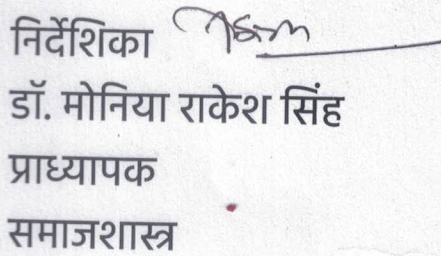 निर्देशिका
डॉ. मोनिया राकेश सिंह
प्राध्यापक
समाजशास्त्र